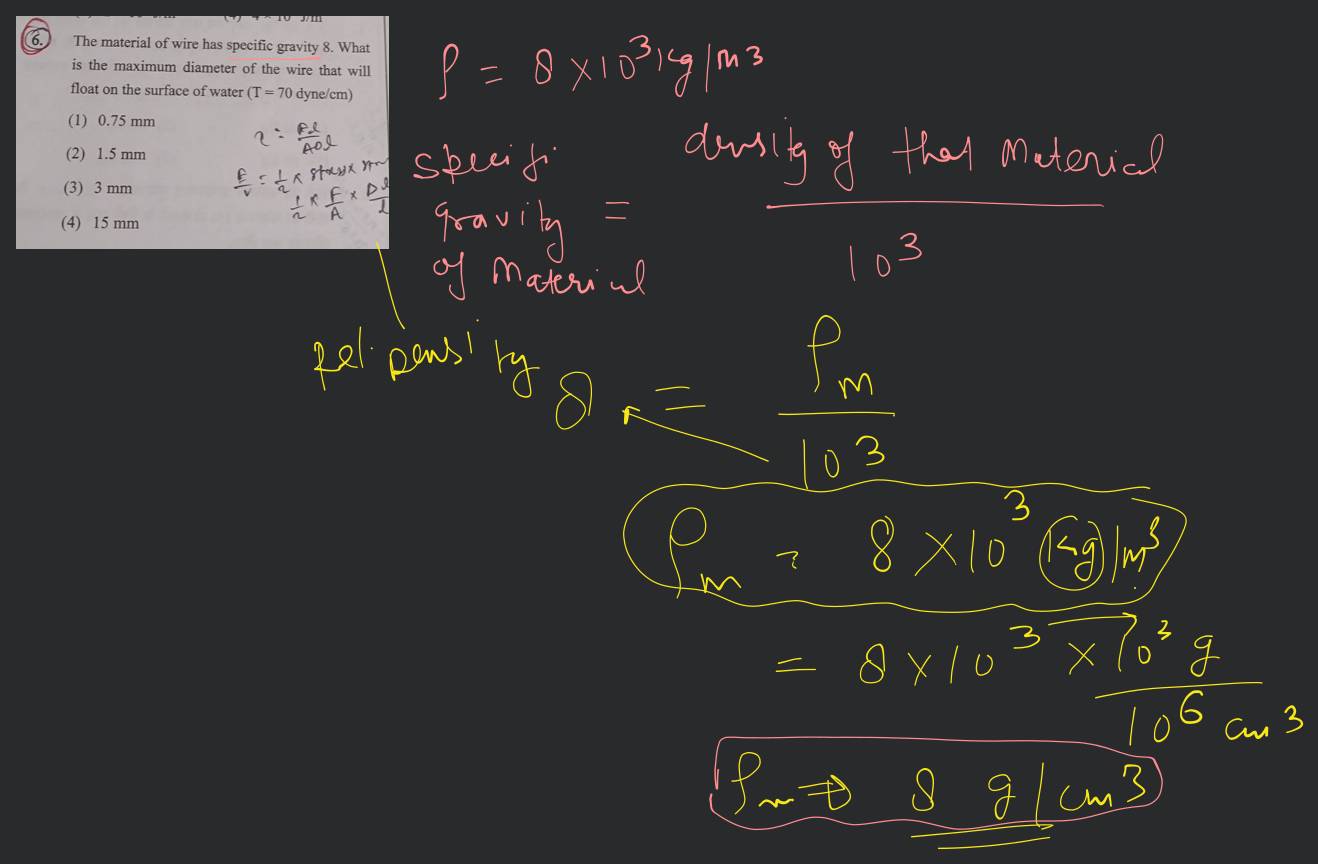 6.
The material of wire has specific gravity 8. What
is the maximum diameter of the wire that will
float on the surface of water (T = 70 dyne/cm)
(1) 0.75 mm
(2) 1.5 mm
(3) 3 mm
(4) 15 mm
E/V = 1/2 × stress ×
1/2 × F/A ×
ρ = 8 × 10³ kg/m3
specifi
gravity
of material
=
density of that material
10³
Rel. Density
8 = ρm / 10³
ρm = 8 × 10³ kg/m³
= 8 × 10³ × 10³ g / 10⁶ cm3
ρm ⇒ 8 g/cm3